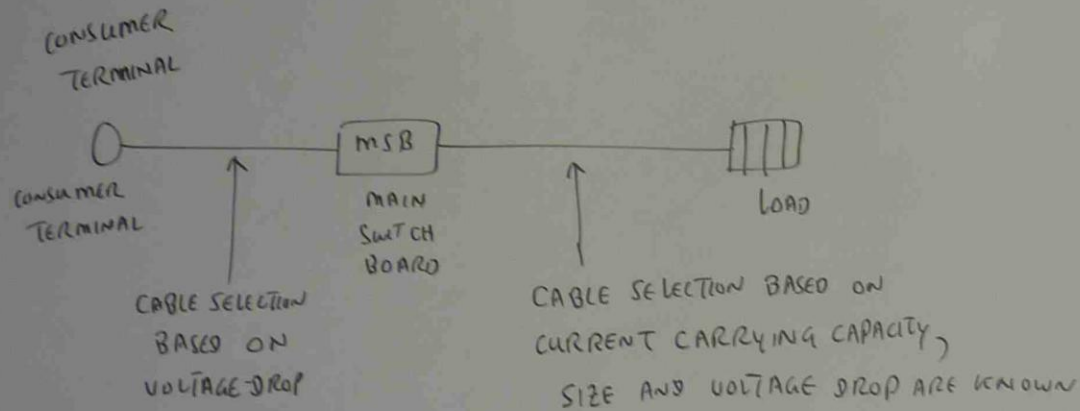 CONSUMER
TERMINAL
MSB
CONSUMER
TERMINAL
MAIN
SWITCH
BOARD
LOAD
CABLE SELECTION
BASED ON
VOLTAGE-DROP
CABLE SELECTION BASED ON
CURRENT CARRYING CAPACITY,
SIZE AND VOLTAGE DROP ARE KNOWN